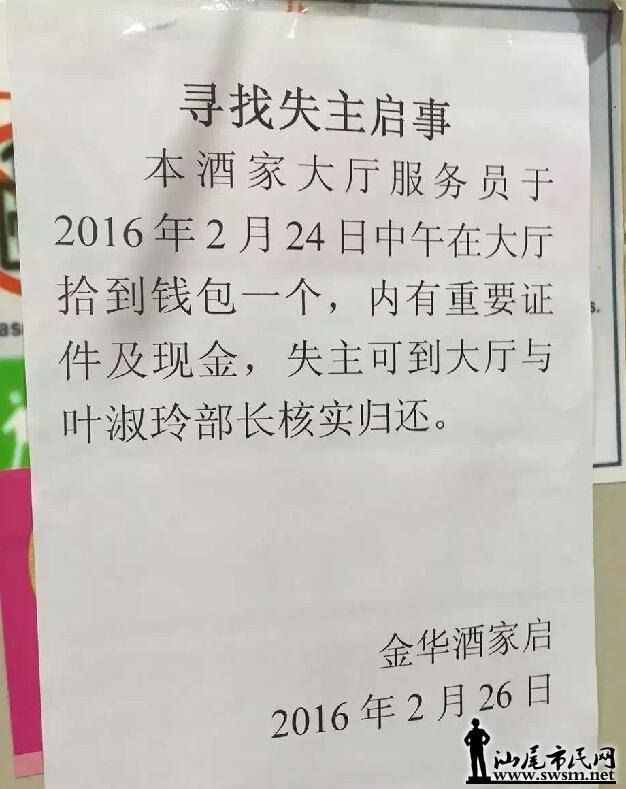 寻找失主启事
本酒家大厅服务员于
2016年2月24日中午在大厅
拾到钱包一个，内有重要证
件及现金，失主可到大厅与
叶淑玲部长核实归还。
金华酒家启
2016年2月26日
汕尾市民网
www.swsm.net